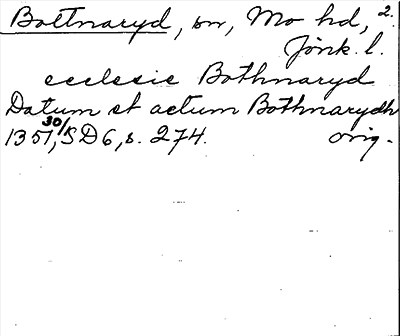 Bottnaryd, sn, Mo hd, 2.
Jönk. l.
ecclesie Bothnaryd
Datum et actum Bothnarydh
1351, 30/5 SD6, s. 274. orig.